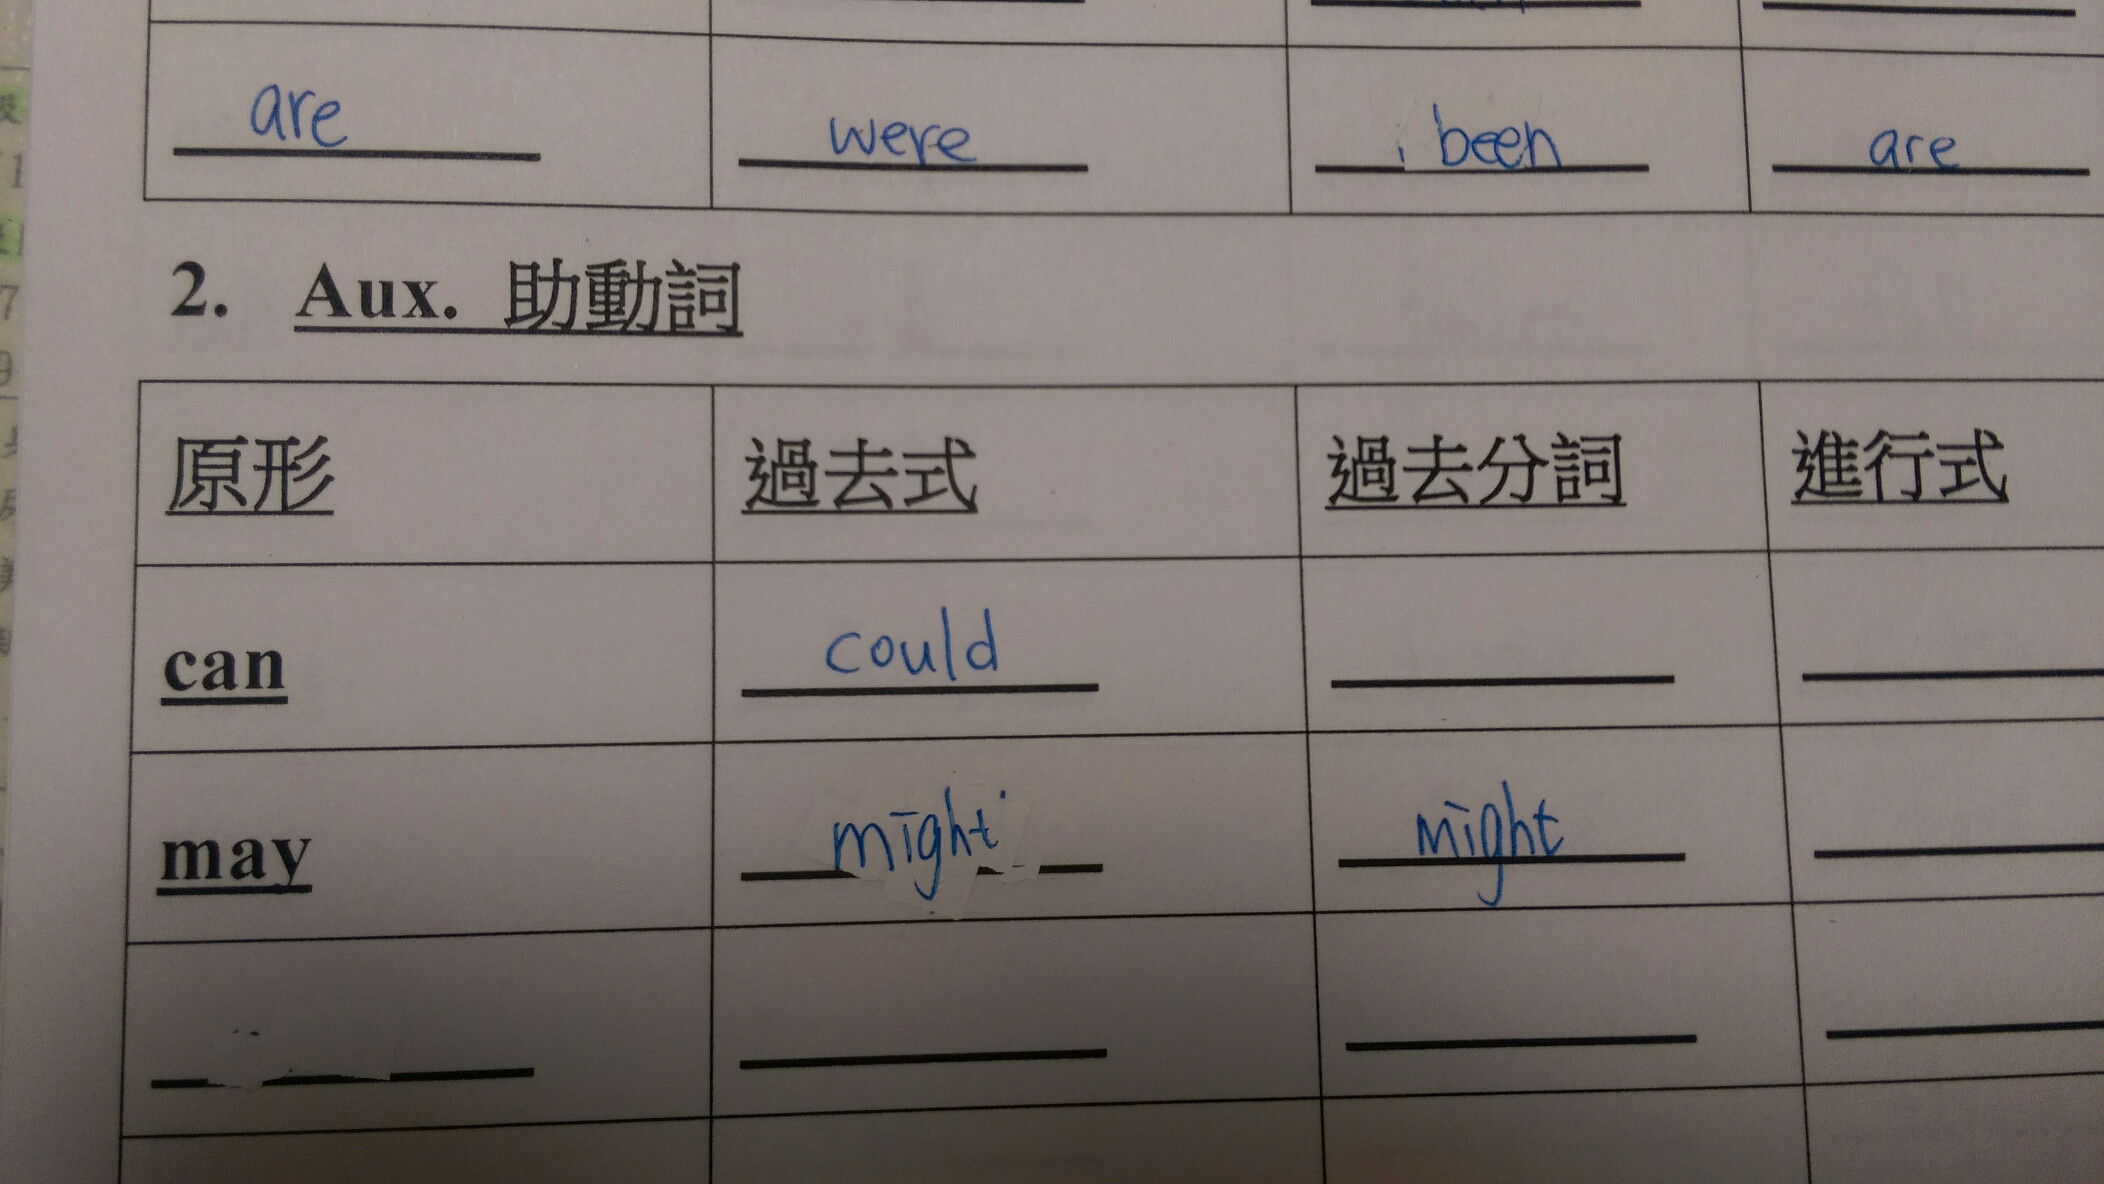 are were been are
2. Aux. 助動詞
原形 過去式 過去分詞 進行式
can could
may might might